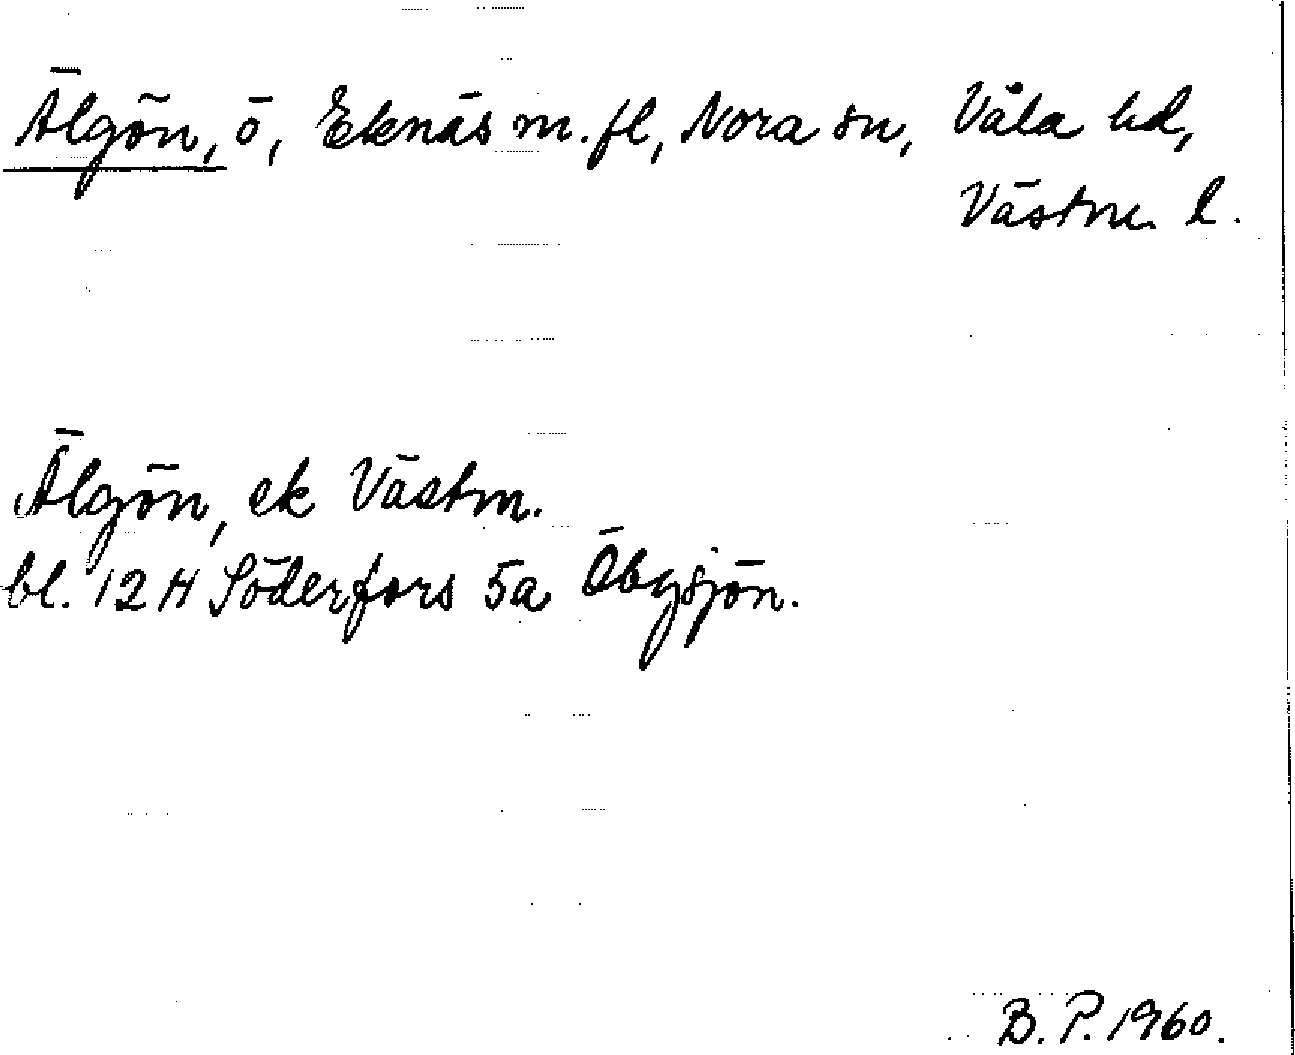 Älgön, ö, Eknäs m.fl, Nora sn, Våla hd,
Västm. l.
Älgön, ek Västm.
bl. 12 H Söderfors 5a Öbysjön.
B. P. 1960.